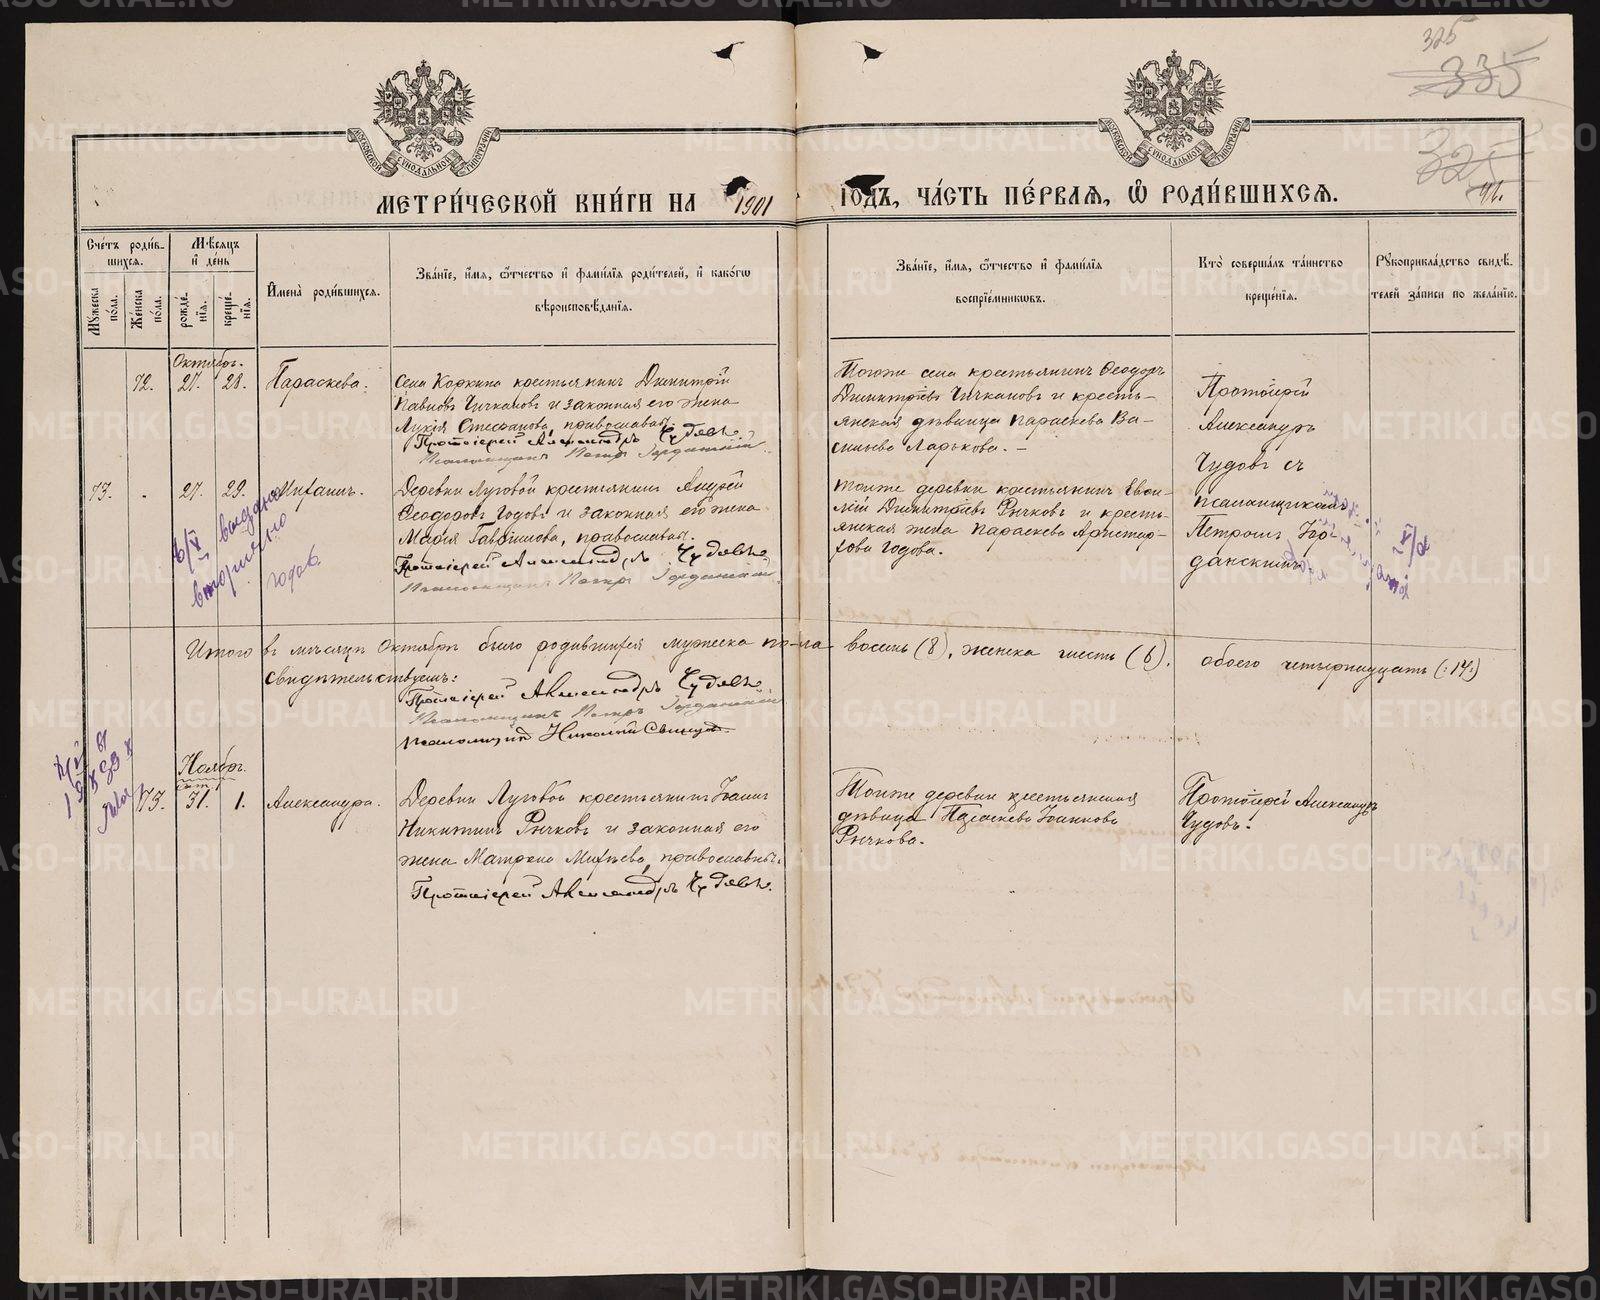 325
335
325
МОСКОВСКОЙ СѴНОДАЛЬНОЙ ТИПОГРАФІИ
МОСКОВСКОЙ СѴНОДАЛЬНОЙ ТИПОГРАФІИ
МЕТРИ́ЧЕСКОЙ КНИ́ГИ НА 1901 ГОДЪ, ЧА́СТЬ ПЕ́РВАЯ, Ѡ РОДИ́ВШИХСЯ.
Сче́тъ роди́в-
шихся.
Му́жеска по́ла.
Же́нска по́ла.
Мѣ́сяцъ
и де́нь
рожде́нїя.
креще́нїя.
И́мена роди́вшихся.
Зва́нїе, и́мя, ѻ́тчество и фами́лїя роди́телей, и како́гѡ
вѣроисповѣ́данїя.
Зва́нїе, и́мя, ѻ́тчество и фами́лїя
воспрїе́мникѡвъ.
Кто̀ соверша́лъ та́инство
креще́нїя.
Рукоприкла́дство свидѣ́-
телей за́писи по жела́нїю.
Октябрь.
72. 27. 28. Параскева.
Села Коркина крестьянинъ Димитрій
Павловъ Чичкановъ и законная его жена
Лукія Стефанова, православные.
Протоіерей Александръ Чудовъ
Псаломщикъ Петръ Іорданскій
Тогоже села крестьянинъ Ѳеодоръ
Димитріевъ Чичкановъ и кресть-
янская дѣвица Параскева Ва-
сильева Ларькова. –
Протоіерей
Александръ
Чудовъ съ
псаломщикомъ
Петромъ Іор-
данскимъ
73. . 27. 29. Михаилъ.
Деревни Луговой крестьянинъ Андрей
Ѳеодоровъ Годовъ и законная его жена
Марія Гавріилова, православные.
Протоіерей Александръ Чудовъ
Псаломщикъ Петръ Іорданскій
Тоиже деревни крестьянинъ
Димитріевъ Рычковъ и кресть-
янская жена Параскева Аристар-
хова Годова.
6/V выдано
вторично
Годов
Итого въ мѣсяцѣ Октябрѣ было родившихся мужеска по-ла восемь (8), женска шесть (6), обоего четырнадцать (:14:)
Свидѣтельствуемъ:
Протоіерей Александръ Чудовъ
Псаломщикъ Петръ Іорданскій
Псаломщик Николай
Ноябрь.
73. 31. 1. Александра.
Деревни Луговой крестьянинъ Іоаннъ
Никитинъ Рычковъ и законная его
жена Матрона Михѣева, православные.
Протоіерей Александръ Чудовъ.
Тоиже деревни крестьянская
дѣвица Параскева Іоаннова
Рычкова.
Протоіерей Александръ
Чудовъ.
METRIKI.GASO-URAL.RU